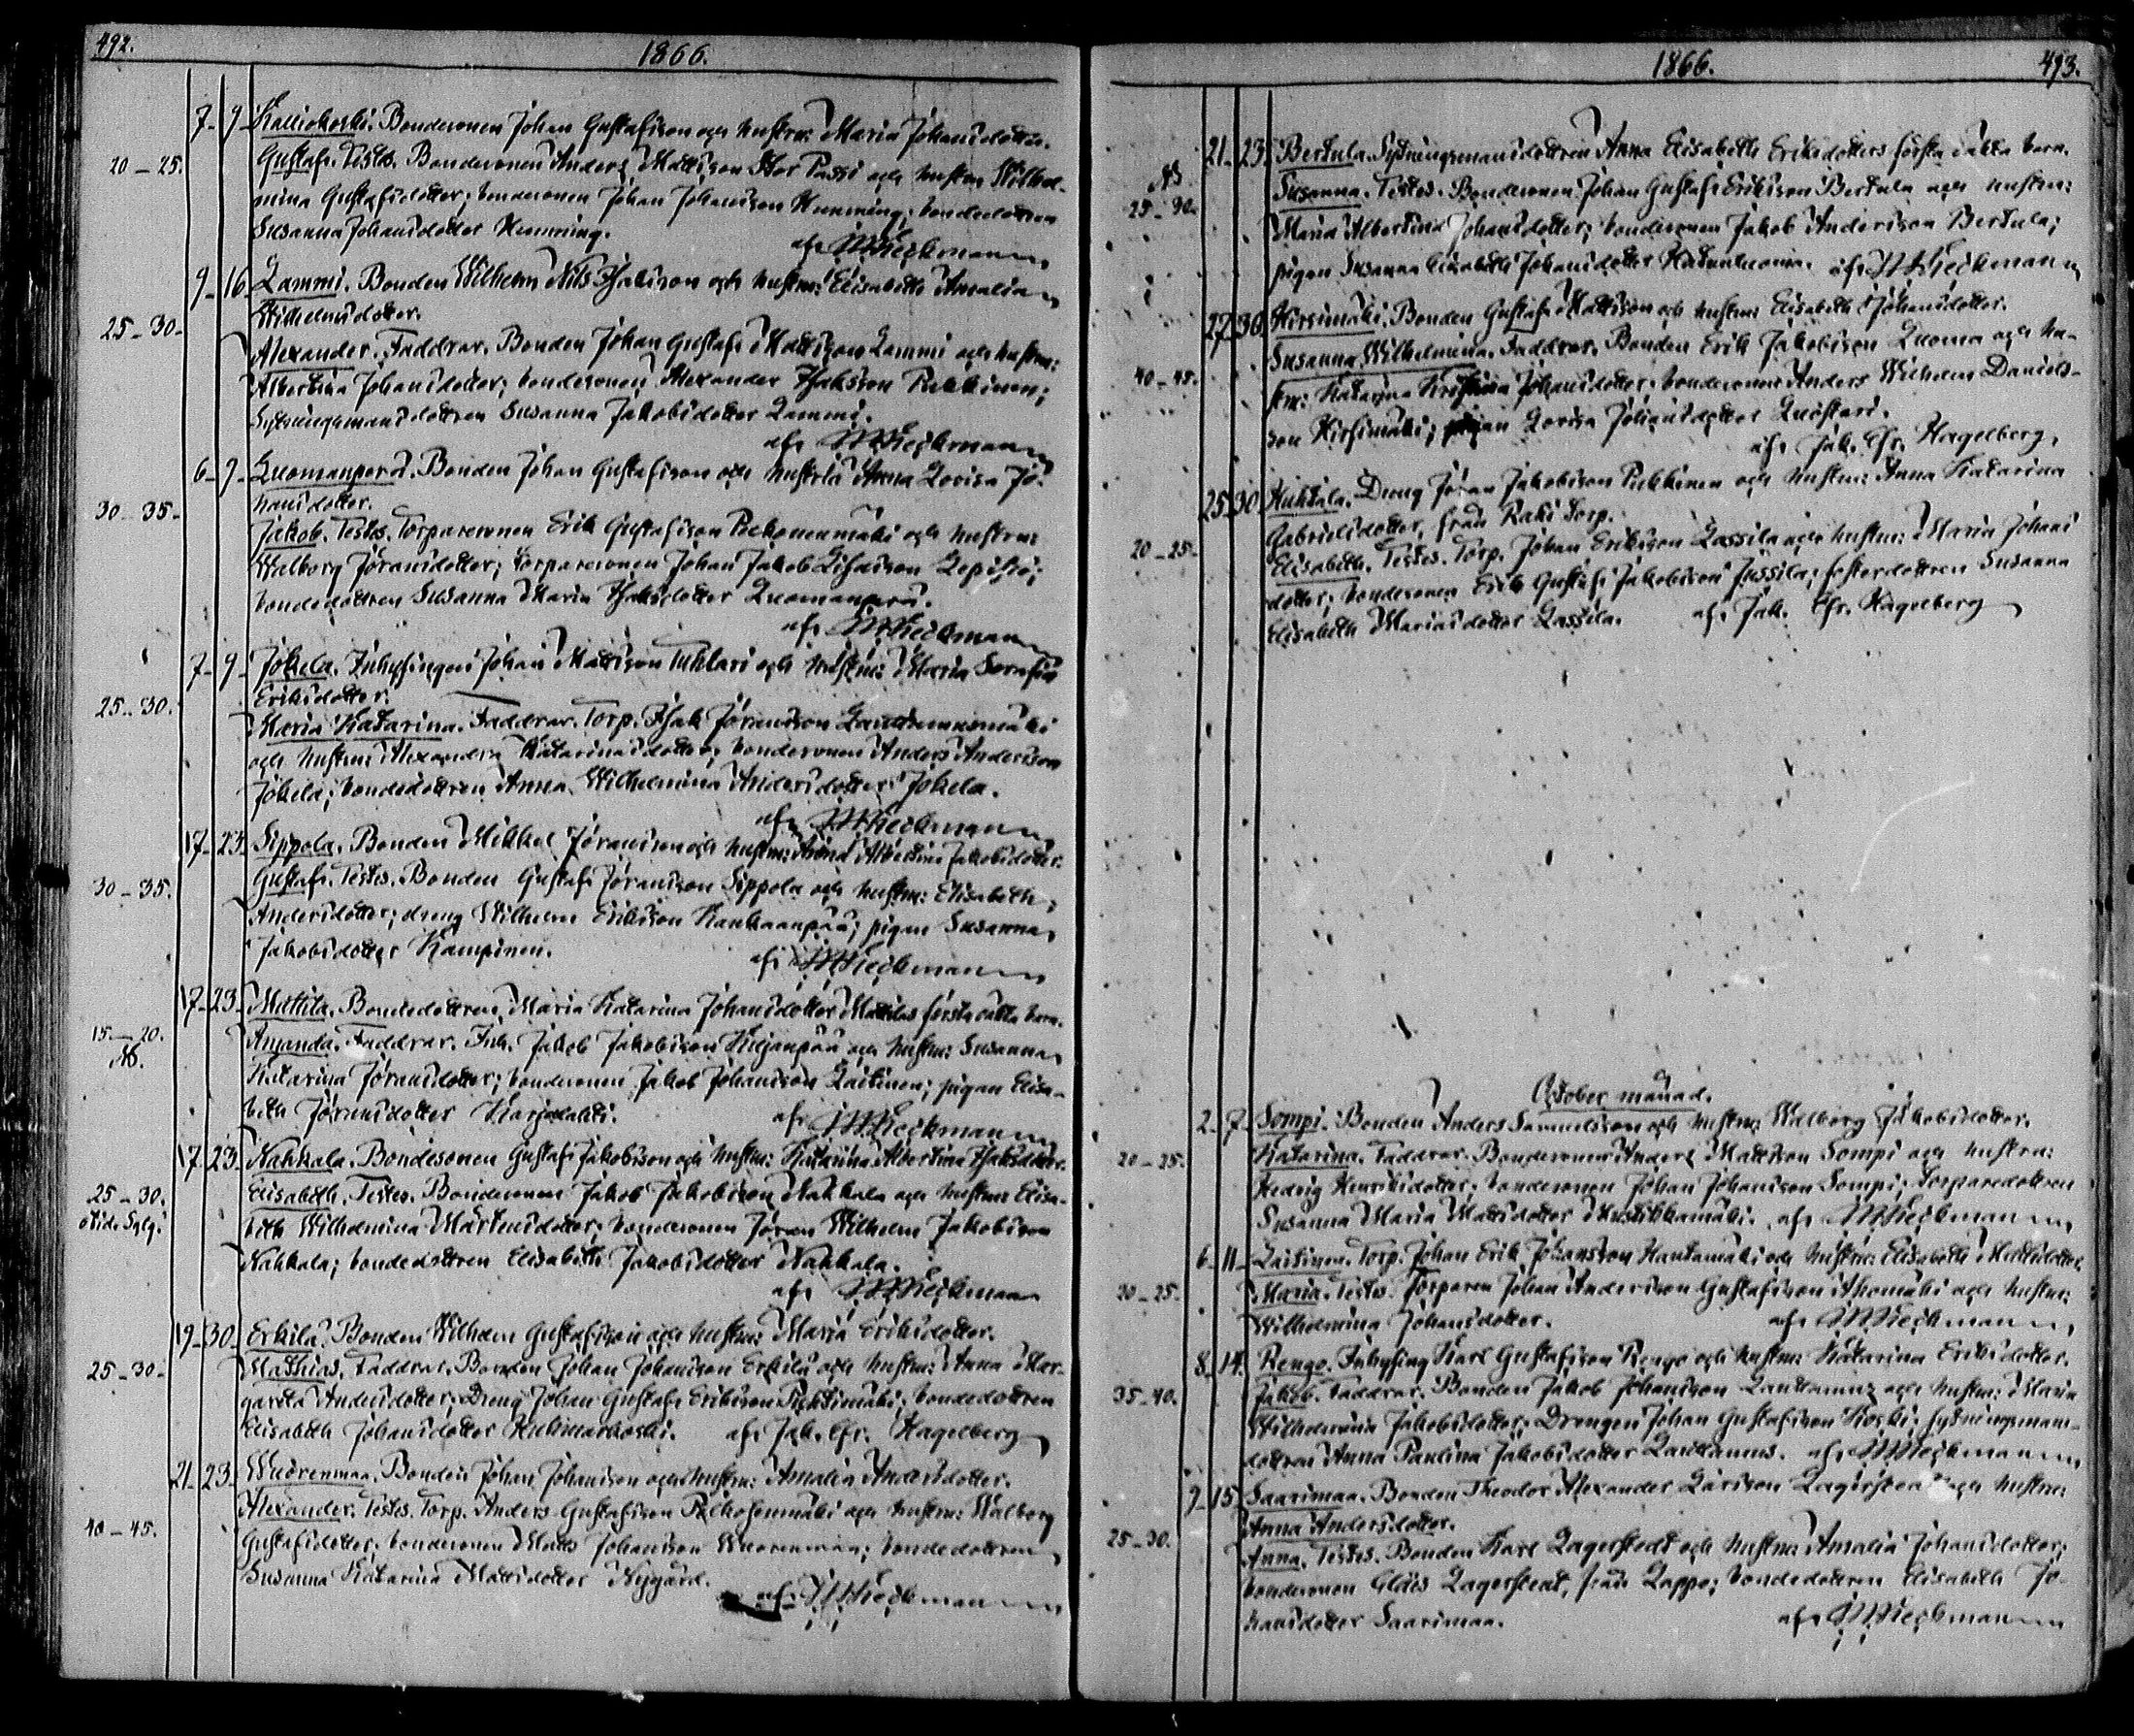 492.
1866.
7-9- Kalliokoski. Bondesonen Johan Gustafsson och hustru: Maria Johansdotter.
20-25. Gustaf. Testes. Bondesonen Anders Mattsson Stor Passi och hustru Wilhel-
mina Gustafsdotter; bondesonen Johan Johansson Hemming; bondedottren
Susanna Johansdotter Hemming.
af: Wieckmann
9-16 Lammi. Bonden Wilhelm Nils Isaksson och hustru: Elisabeth Amalia
Wilhelmsdotter.
25-30-
Alexander. Faddrar. Bonden Johan Gustaf Mattsson Lammi och hustru:
Albertina Johansdotter; bondesonen Alexander Isaksson Pukkinen;
Sytningsmansdottren Susanna Jakobsdotter Lammi.
af: Wieckmann
6-9- Luomanperä. Bonden Johan Gustafsson och hustru Anna Lovisa Jo-
hansdotter.
30-35-
Jakob. Testes. Torparesonen Erik Gustafsson och hustru:
Walborg Jöransdotter; torparesonen Johan Jakob
bondedottren Susanna Maria Isaksdotter Luomanperä.
af: Wieckmann
7-9- Jokela. Inhysingen Johan Mattsson Tuhlari och hustru: Maria Serafia
Eriksdotter.
25-30.
Maria Katarina. Faddrar. Torp. Isak Jöransson
och hustru: Alexandra Katarinasdotter; bondesonen Anders Andersson
Jokela; bondedottren Anna Wilhelmina Andersdotter Jokela.
af: Wieckmann
17-23- Sippola. Bonden Mikkel Jöransson och hustru: Anna Albertina Jakobsdotter.
30-35. Gustaf. Testes. Bonden Gustaf Jöransson Sippola och hustru: Elisabeth
Andersdotter; dreng Wilhelm Eriksson Kankaanpää; pigan Susanna
Jakobsdotter Kampinen.
af: Wieckmann
17-23- Mattila. Bondedottren Maria Katarina Johansdotter Mattilas första oäkta barn.
15-20. Amanda. Faddrar. Inh. Jakob Jakobsson och hustru: Susanna
Katarina Jöransdotter; bondesonen Jakob Johansson Laitinen; pigan Elisa-
beth Jöransdotter Karjalahti.
af: Wieckmann
17-23- Nahkala. Bondesonen Gustaf Jakobsson och hustru: Katarina Albertina Isaksdotter.
25-30. Elisabeth. Testes. Bondesonen Jakob Jakobsson Nahkala och hustru: Elisa-
beth Wilhelmina Martinsdotter; bondesonen Jöran Wilhelm Jakobsson
Nahkala; bondedottren Elisabeth Jakobsdotter Nahkala.
af: Wieckmann
19-30- Erkilä. Bonden Wilhelm Gustafsson och hustru: Maria Eriksdotter.
25-30- Matthias. Faddrar. Bonden Johan Johansson Erkilä och hustru: Anna Mar-
gareta Andersdotter; Dreng Johan Gustaf Eriksson; bondedottren
Elisabeth Johansdotter af: Jak. Efr. Hagelberg
21-23- Wuorenmaa. Bonden Johan Johansson och hustru: Amalia Andersdotter.
Alexander. Testes. Torp. Anders Gustafsson och hustru: Walborg
40-45.
Gustafsdotter; bondesonen Matts Johansson Wuorenmaa; bondedottren
Susanna Katarina Mattsdotter Nygård.
af: Wieckmann
1866.
493.
21-23. Bertula. Sytningsmansdottren Anna Elisabeth Eriksdotters första oäkta barn.
25-30. Susanna. Testes. Bondesonen Johan Gustaf Eriksson Bertula och hustru:
Maria Albertina Johansdotter; bondesonen Jakob Andersson Bertula;
pigan Susanna Elisabeth Johansdotter af: Wieckmann
27-30 Hirsimäki. Bonden Gustaf Mattsson och hustru Elisabeth Johansdotter.
Susanna Wilhelmina. Faddrar. Bonden Erik Jakobsson Luoma och hu-
40-45.
stru: Katarina Kristina Johansdotter; bondesonen Anders Wilhelm Daniels-
son Hirsimäki; pigan Lovisa Johansdotter
af: Jak. Efr. Hagelberg.
25-30 Huhtala. Dreng Jöran Jakobsson Pukkinen och hustru: Anna Katarina
Gabrielsdotter, från Raki torp.
20-25-
Elisabeth. Testes. Torp. Johan Eriksson Lassila och hustru: Maria Johans
dotter; bondesonen Erik Gustaf Jakobsson Jussila; fosterdottren Susanna
Elisabeth Mariasdotter Lassila. af: Jak. Efr. Hagelberg
October månad.
2-7- Sompi. Bonden Anders Samuelsson och hustru: Walborg Jakobsdotter.
20-25. Katarina. Faddrar. Bondesonen Anders Mattsson Sompi och hustru:
Hedvig Henriksdotter; bondesonen Johan Johansson Sompi; torparedottren
Susanna Maria Mattsdotter Mustikkamäki. af: Wieckmann
6-11- Laitinen. Torp. Johan Erik Johansson Hautamäki och hustru: Elisabeth Mattsdotter.
20-25- Maria. Testes. Torparen Johan Andersson Gustafsson Ahomäki och hustru:
Wilhelmina Johansdotter. af: Wieckmann
8-14. Rengo. Inhysing Karl Gustafsson Rengo och hustru: Katarina Eriksdotter.
35-40. Jakob. Faddrar. Bonden Jakob Johansson Lanttamus och hustru: Maria
Wilhelmina Jakobsdotter; Drengen Johan Gustafsson Koski; sytningsmans-
dottren Anna Paulina Jakobsdotter Lanttamus. af: Wieckmann
9-15- Saarimaa. Bonden Theodor Alexander Larsson Lagerstedt och hustru:
Anna Andersdotter.
25-30.
Anna. Testes. Bonden Karl Lagerstedt och hustru: Amalia Johansdotter;
bondesonen Claës Lagerstedt, från Lappo; bondedottren Elisabeth Jo-
hansdotter Saarimaa. af: Wieckmann